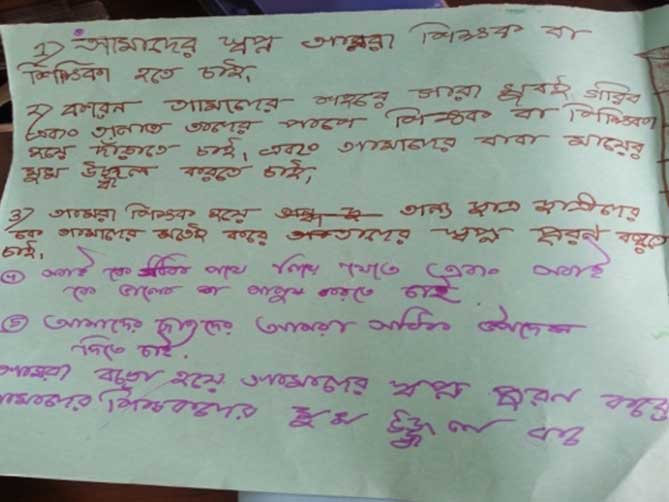 ১) আমাদের স্বপ্ন আমরা শিক্ষক বা
শিক্ষিকা হতে চাই,
২) কারন আমাদের শহরে যারা খুবই গরিব
এবং অনাথ তাদের পাশে শিক্ষক বা শিক্ষিকা
হয়ে দাঁড়াতে চাই, এবং আমাদের বাবা মায়ের
মুখ উজ্জ্বল করতে চাই,
৩) আমরা শিক্ষক হয়ে অন্য ছাত্র ছাত্রীদের
কে আমাদের মতোই করে তাদের স্বপ্ন পূরন করতে
চাই,
④ সবাই কে সঠিক পথে নিয়ে যেতে এবং সবাই
কে মানুষ করতে চাই
⑤ আমাদের ছাত্রদের আমরা সঠিক উপদেশ
দিতে চাই,
আমরা বড়ো হয়ে আমাদের স্বপ্ন পূরন করতে
আমাদের শিক্ষকদের মুখ উজ্জ্বল